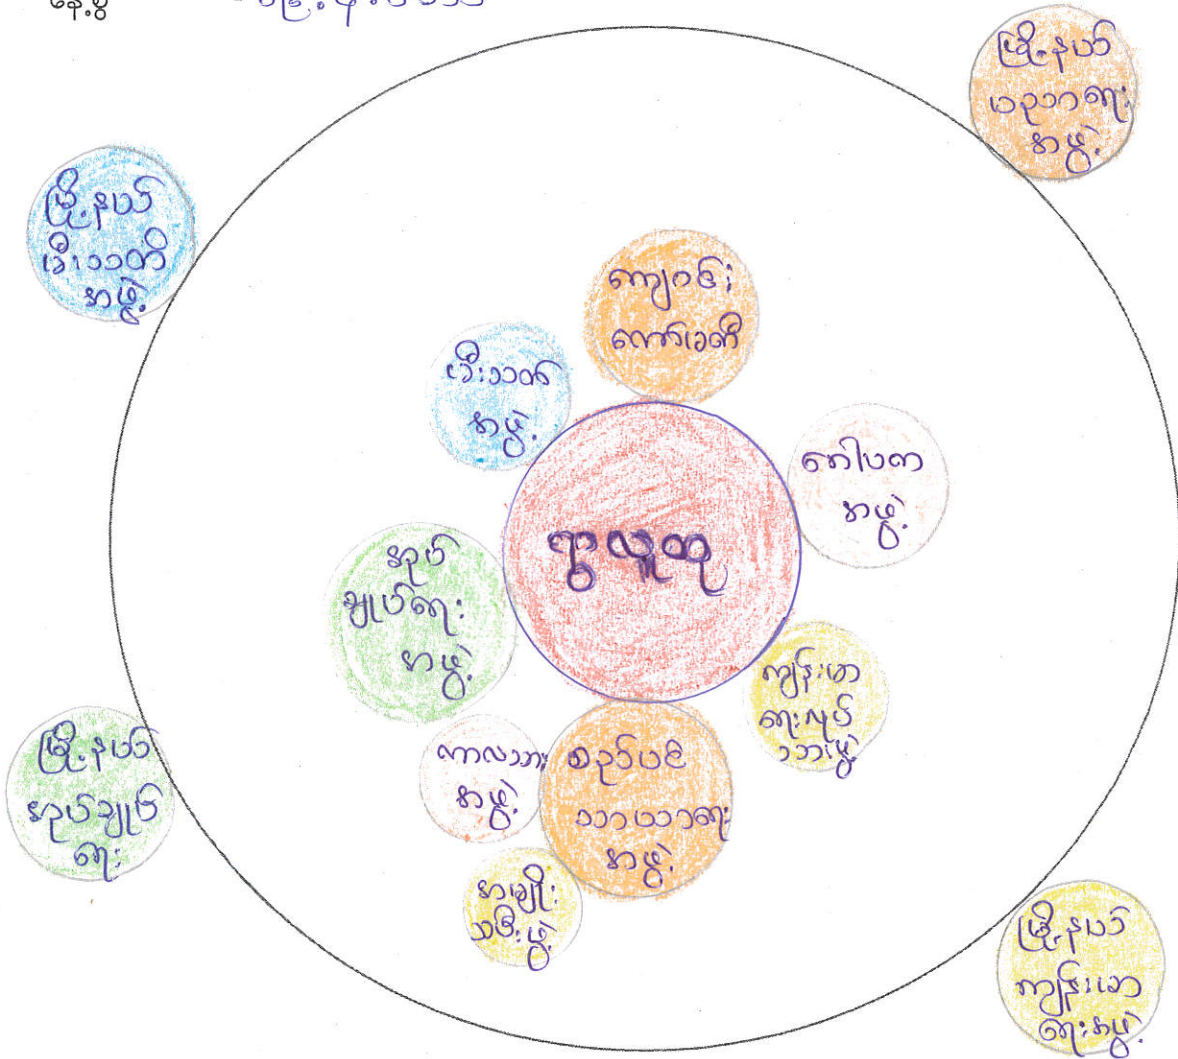 နေ့စွဲ
မြို့နယ်
ပညာရေး
အဖွဲ့
မြို့နယ်
မီးသတ်
အဖွဲ့
ကျောင်း
ကော်မတီ
မီးသတ်
အဖွဲ့
ဂေါပက
အဖွဲ့
ရွာလူထု
အုပ်
ချုပ်ရေး
အဖွဲ့
ကျန်းမာ
ရေးလုပ်
သားဖွဲ့
ကာလသား
အဖွဲ့
စည်ပင်
သာယာရေး
အဖွဲ့
မြို့နယ်
အုပ်ချုပ်
ရေး
အမျိုး
သမီးဖွဲ့
မြို့နယ်
ကျန်းမာ
ရေးအဖွဲ့